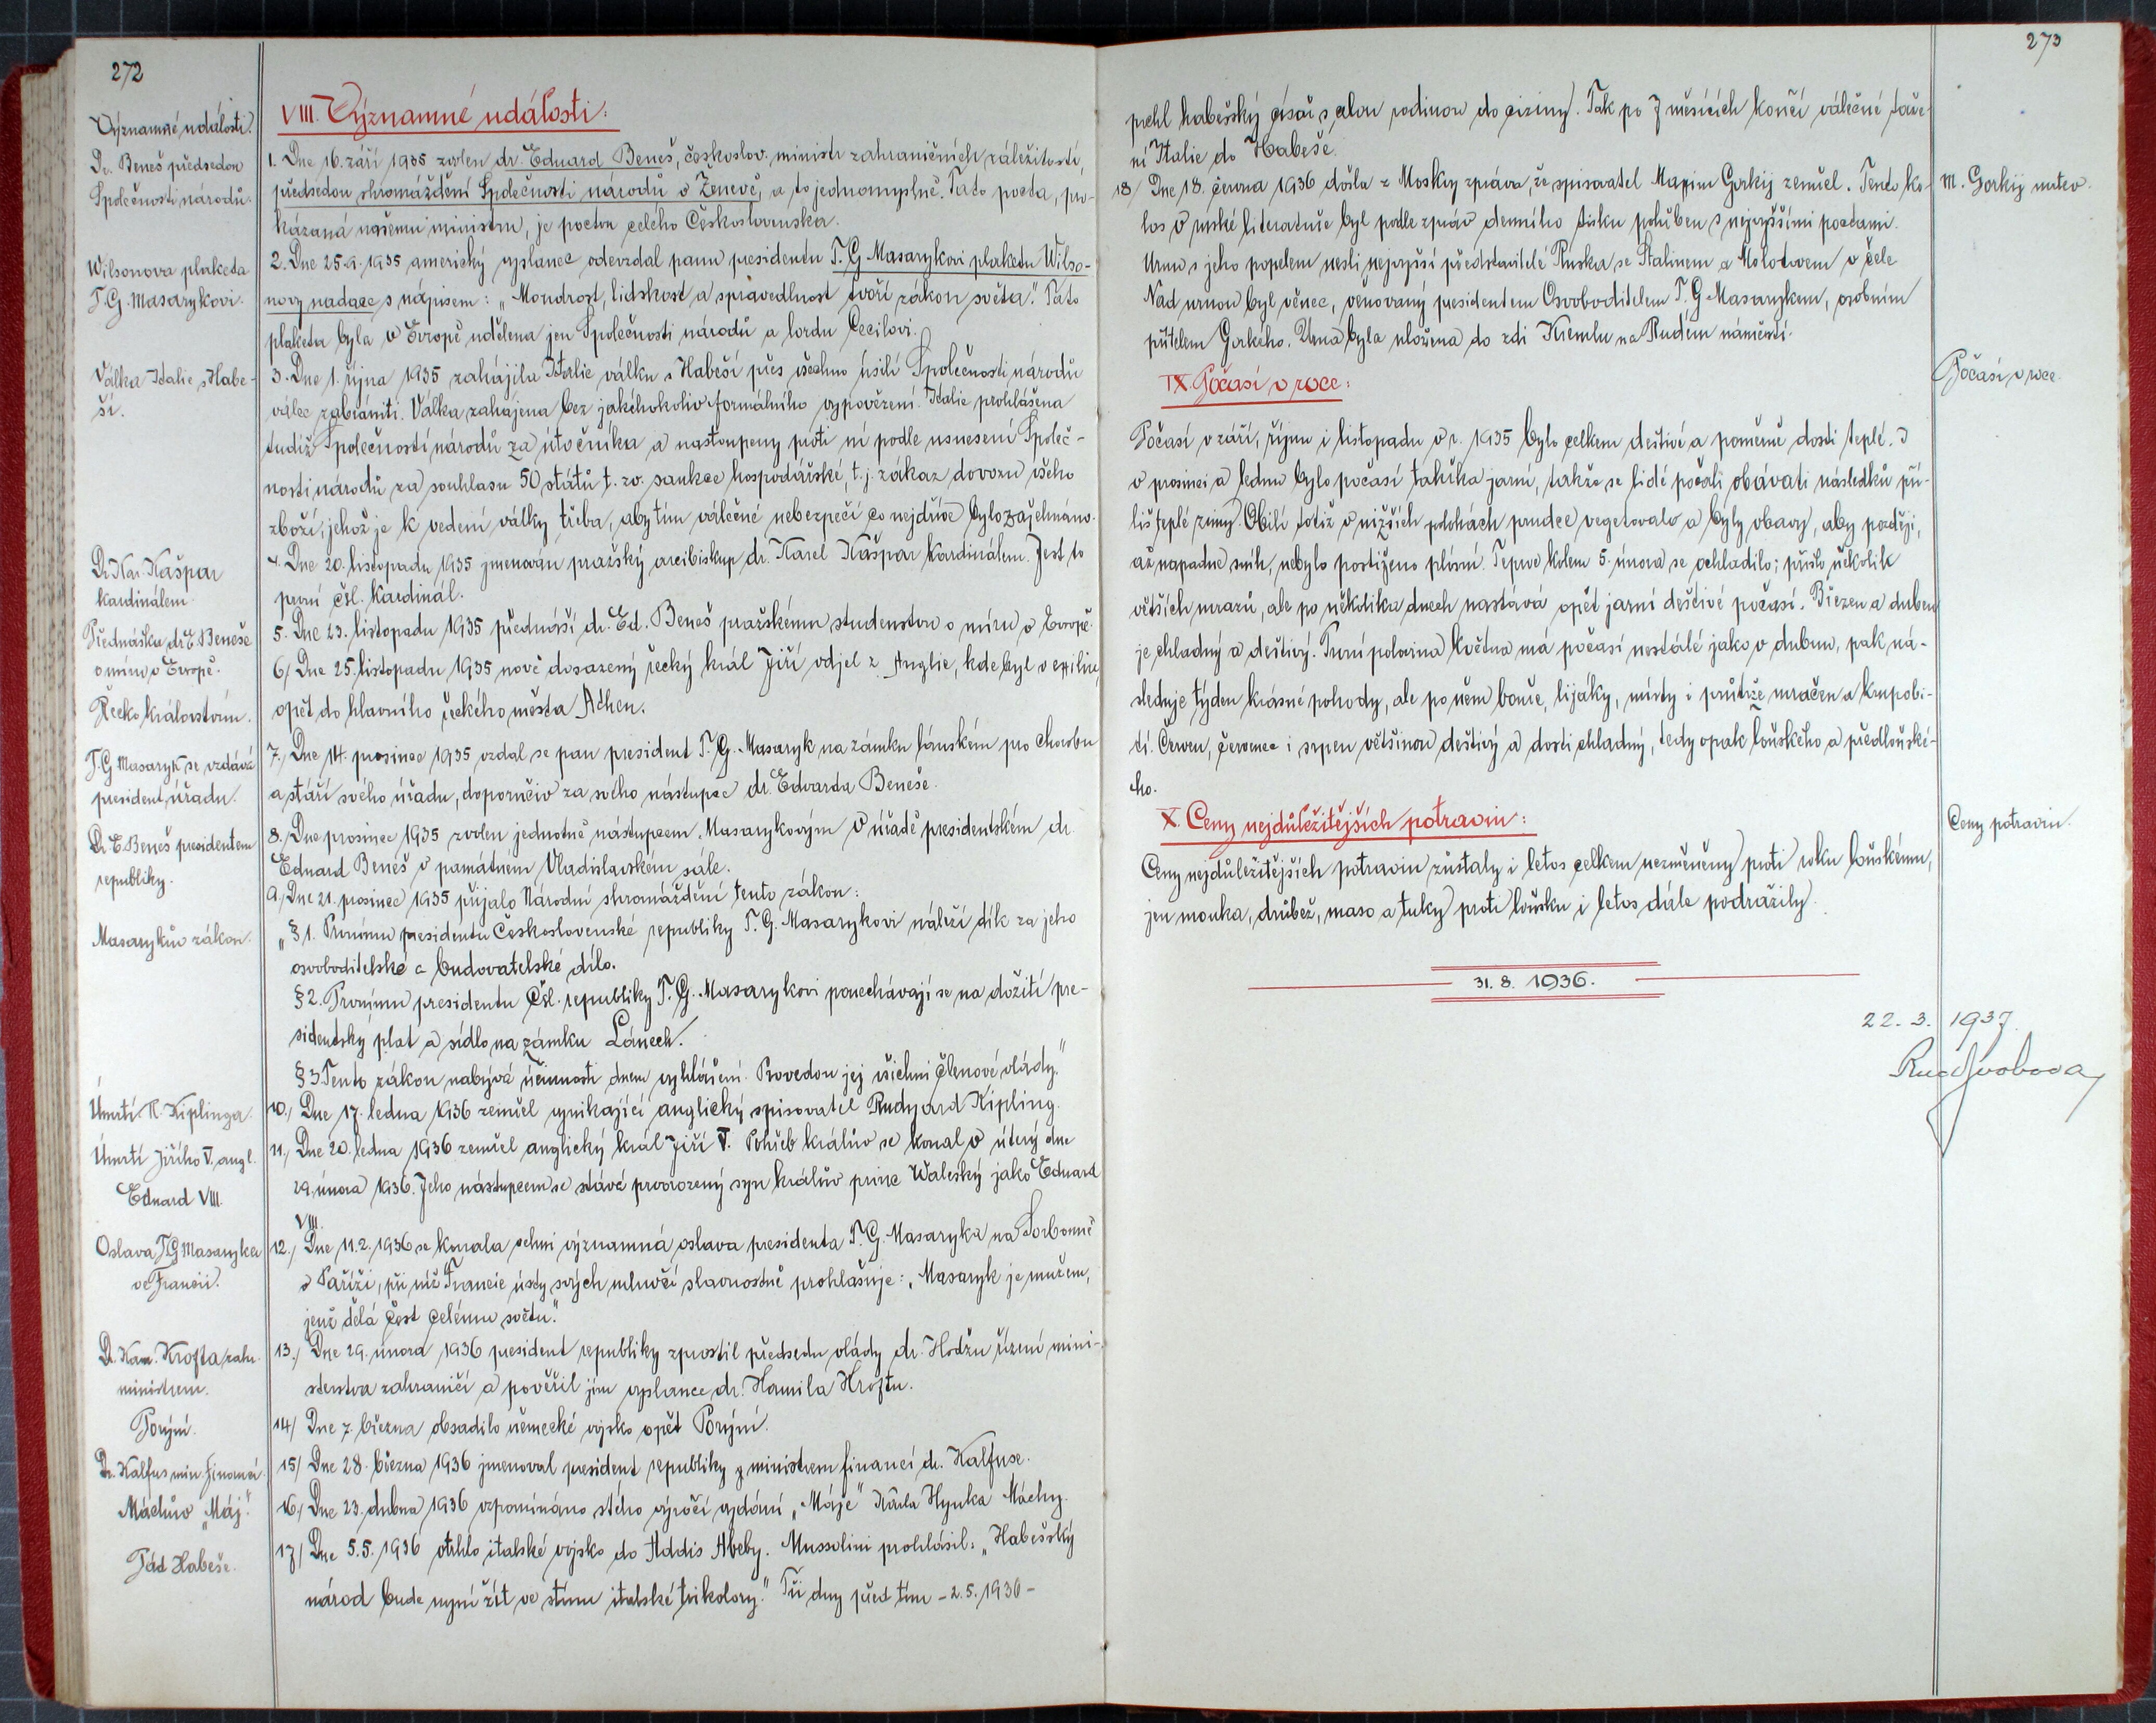 272
Významné události.
VIII. Významné události:
Dr. Beneš předsedou
Společnosti národů.
1. Dne 16. září 1935 zvolen dr. Eduard Beneš, českoslov. ministr zahraničních záležitostí,
předsedou shromáždění Společnosti národů v Ženevě, a to jednomyslně. Tato pocta, pro-
kázaná našemu ministru, je poctou celého Československa.
Wilsonova plaketa
T. G. Masarykovi.
2. Dne 25.9.1935 americký vyslanec odevzdal panu presidentu T. G. Masarykovi plaketu Wilso-
novy nadace s nápisem: „Moudrost, lidskost a spravedlnost tvoří zákon světa." Tato
plaketa byla v Evropě udělena jen Společnosti národů a lordu Cecilovi.
Válka Italie s Habe-
ší.
3. Dne 1. října 1935 zahájila Italie válku s Habeší přes všechno úsilí Společnosti národů
válce zabrániti. Válka zahájena bez jakéhokoliv formálního vypovězení. Italie prohlášena
tudíž Společností národů za útočníka a nastoupeny proti ní podle usnesení Společ-
nosti národů za souhlasu 50 států t. zv. sankce hospodářské, t. j. zákaz dovozu všeho
zboží, jehož je k vedení války třeba, aby tím válečné nebezpečí co nejdříve bylo zažehnáno.
Dr Kar. Kašpar
kardinálem.
4. Dne 20. listopadu 1935 jmenován pražský arcibiskup dr. Karel Kašpar kardinálem. Jest to
první čsl. kardinál.
Přednáška dr E. Beneše
o míru v Evropě.
5. Dne 23. listopadu 1935 přednáší dr. Ed. Beneš pražskému studentstvu o míru v Evropě.
Řecko královstvím.
6/ Dne 25. listopadu 1935 nově dosazený řecký král Jiří odjel z Anglie, kde byl v exiliu,
opět do hlavního řeckého města Athen.
T. G Masaryk se vzdává
president. úřadu.
7./ Dne 14. prosince 1935 vzdal se pan president T. G. Masaryk na zámku lánském pro chorobu
a stáří svého úřadu, doporučiv za svého nástupce dr. Edvarda Beneše.
Dr E. Beneš presidentem
republiky.
8./ Dne prosince 1935 zvolen jednotně nástupcem Masarykovým v úřadě presidentském dr.
Eduard Beneš v památném Vladislavském sále.
Masarykův zákon.
9./ Dne 21. prosince 1935 přijalo Národní shromáždění tento zákon:
„§ 1. Prvnímu presidentu Československé republiky T. G. Masarykovi náleží dík za jeho
osvoboditelské a budovatelské dílo.
§ 2. Prvnímu presidentu Čsl. republiky T. G. Masarykovi ponechávají se na dožití pre-
sidentský plat a sídlo na zámku Lánech.
§ 3 Tento zákon nabývá účinnosti dnem vyhlášení. Provedou jej všichni členové vlády."
Úmrtí R. Kiplinga.
10./ Dne 17. ledna 1936 zemřel vynikající anglický spisovatel Rudyard Kipling.
Úmrtí Jiřího V. angl.
Eduard VIII.
11./ Dne 20. ledna 1936 zemřel anglický král Jiří V. Pohřeb králův se konal v úterý dne
29. února 1936. Jeho nástupcem se stává prvorozený syn králův princ Waleský jako Eduard
VIII.
Oslava T. G Masaryka
ve Francii.
12./ Dne 11.2.1936 se konala velmi významná oslava presidenta T. G. Masaryka na Sorbonně
v Paříži, při níž Francie ústy svých mluvčí slavnostně prohlašuje: „Masaryk je mužem,
jenž dělá čest celému světu."
Dr. Kam. Krofta zahr.
ministrem.
13./ Dne 29. února 1936 president republiky zprostil předsedu vlády dr. Hodžu řízení mini-
sterstva zahraničí a pověřil jím vyslance dr. Kamila Kroftu.
Porýní.
14/ Dne 7. března obsadilo německé vojsko opět Porýní.
Dr. Kalfus min. financí.
15/ Dne 28. března 1936 jmenoval president republiky ministrem financí dr. Kalfuse.
Máchův „Máj".
16./ Dne 23. dubna 1936 vzpomínáno stého výročí vydání „Máje" Karla Hynka Máchy.
Pád Habeše.
17/ Dne 5.5.1936 vtrhlo italské vojsko do Addis Abeby. Mussolini prohlásil: „Habešský
národ bude nyní žít ve stínu italské trikolory." Tři dny před tím – 2.5.1936 –
273
prchl habešský císař s celou rodinou do ciziny. Tak po 7 měsících končí válečné taže-
ní Italie do Habeše.
M. Gorkij mrtev.
18/ Dne 18. června 1936 došla z Moskvy zpráva, že spisovatel Maxim Gorkij zemřel. Tento ko-
los v ruské literatuře byl podle zpráv denního tisku pohřben s nejvyššími poctami.
Urnu s jeho popelem nesli nejvyšší představitelé Ruska se Stalinem a Molotovem v čele.
Nad urnou byl věnec, věnovaný presidentem Osvoboditelem T. G Masarykem, osobním
přítelem Gorkého. Urna byla vložena do zdi Kremlu na Rudém náměstí.
Počasí v roce.
IX. Počasí v roce:
Počasí v září, říjnu i listopadu v r. 1935 bylo celkem deštivé a poměrně dosti teplé. I
v prosinci a lednu bylo počasí takřka jarní, takže se lidé počali obávati následků pří-
liš teplé zimy. Obilí totiž v nižších polohách prudce vegetovalo a byly obavy, aby později,
až napadne sníh, nebylo postiženo plísní. Teprve kolem 5. února se ochladilo; přišlo několik
větších mrazů, ale po několika dnech nastává opět jarní deštivé počasí. Březen a duben
je chladný a deštivý. První polovina května má počasí nestálé jako v dubnu, pak ná-
sleduje týden krásné pohody, ale po něm bouře, lijáky, místy i průtrže mračen a krupobi-
tí. Červen, červenec i srpen většinou deštivý a dosti chladný, tedy opak loňského a předloňské-
ho.
Ceny potravin.
X. Ceny nejdůležitějších potravin:
Ceny nejdůležitějších potravin zůstaly i letos celkem nezměněny proti roku loňskému,
jen mouka, drůbež, maso a tuky proti loňsku i letos dále podražily.
31. 8. 1936.
22. 3. 1937.
Rud Svoboda